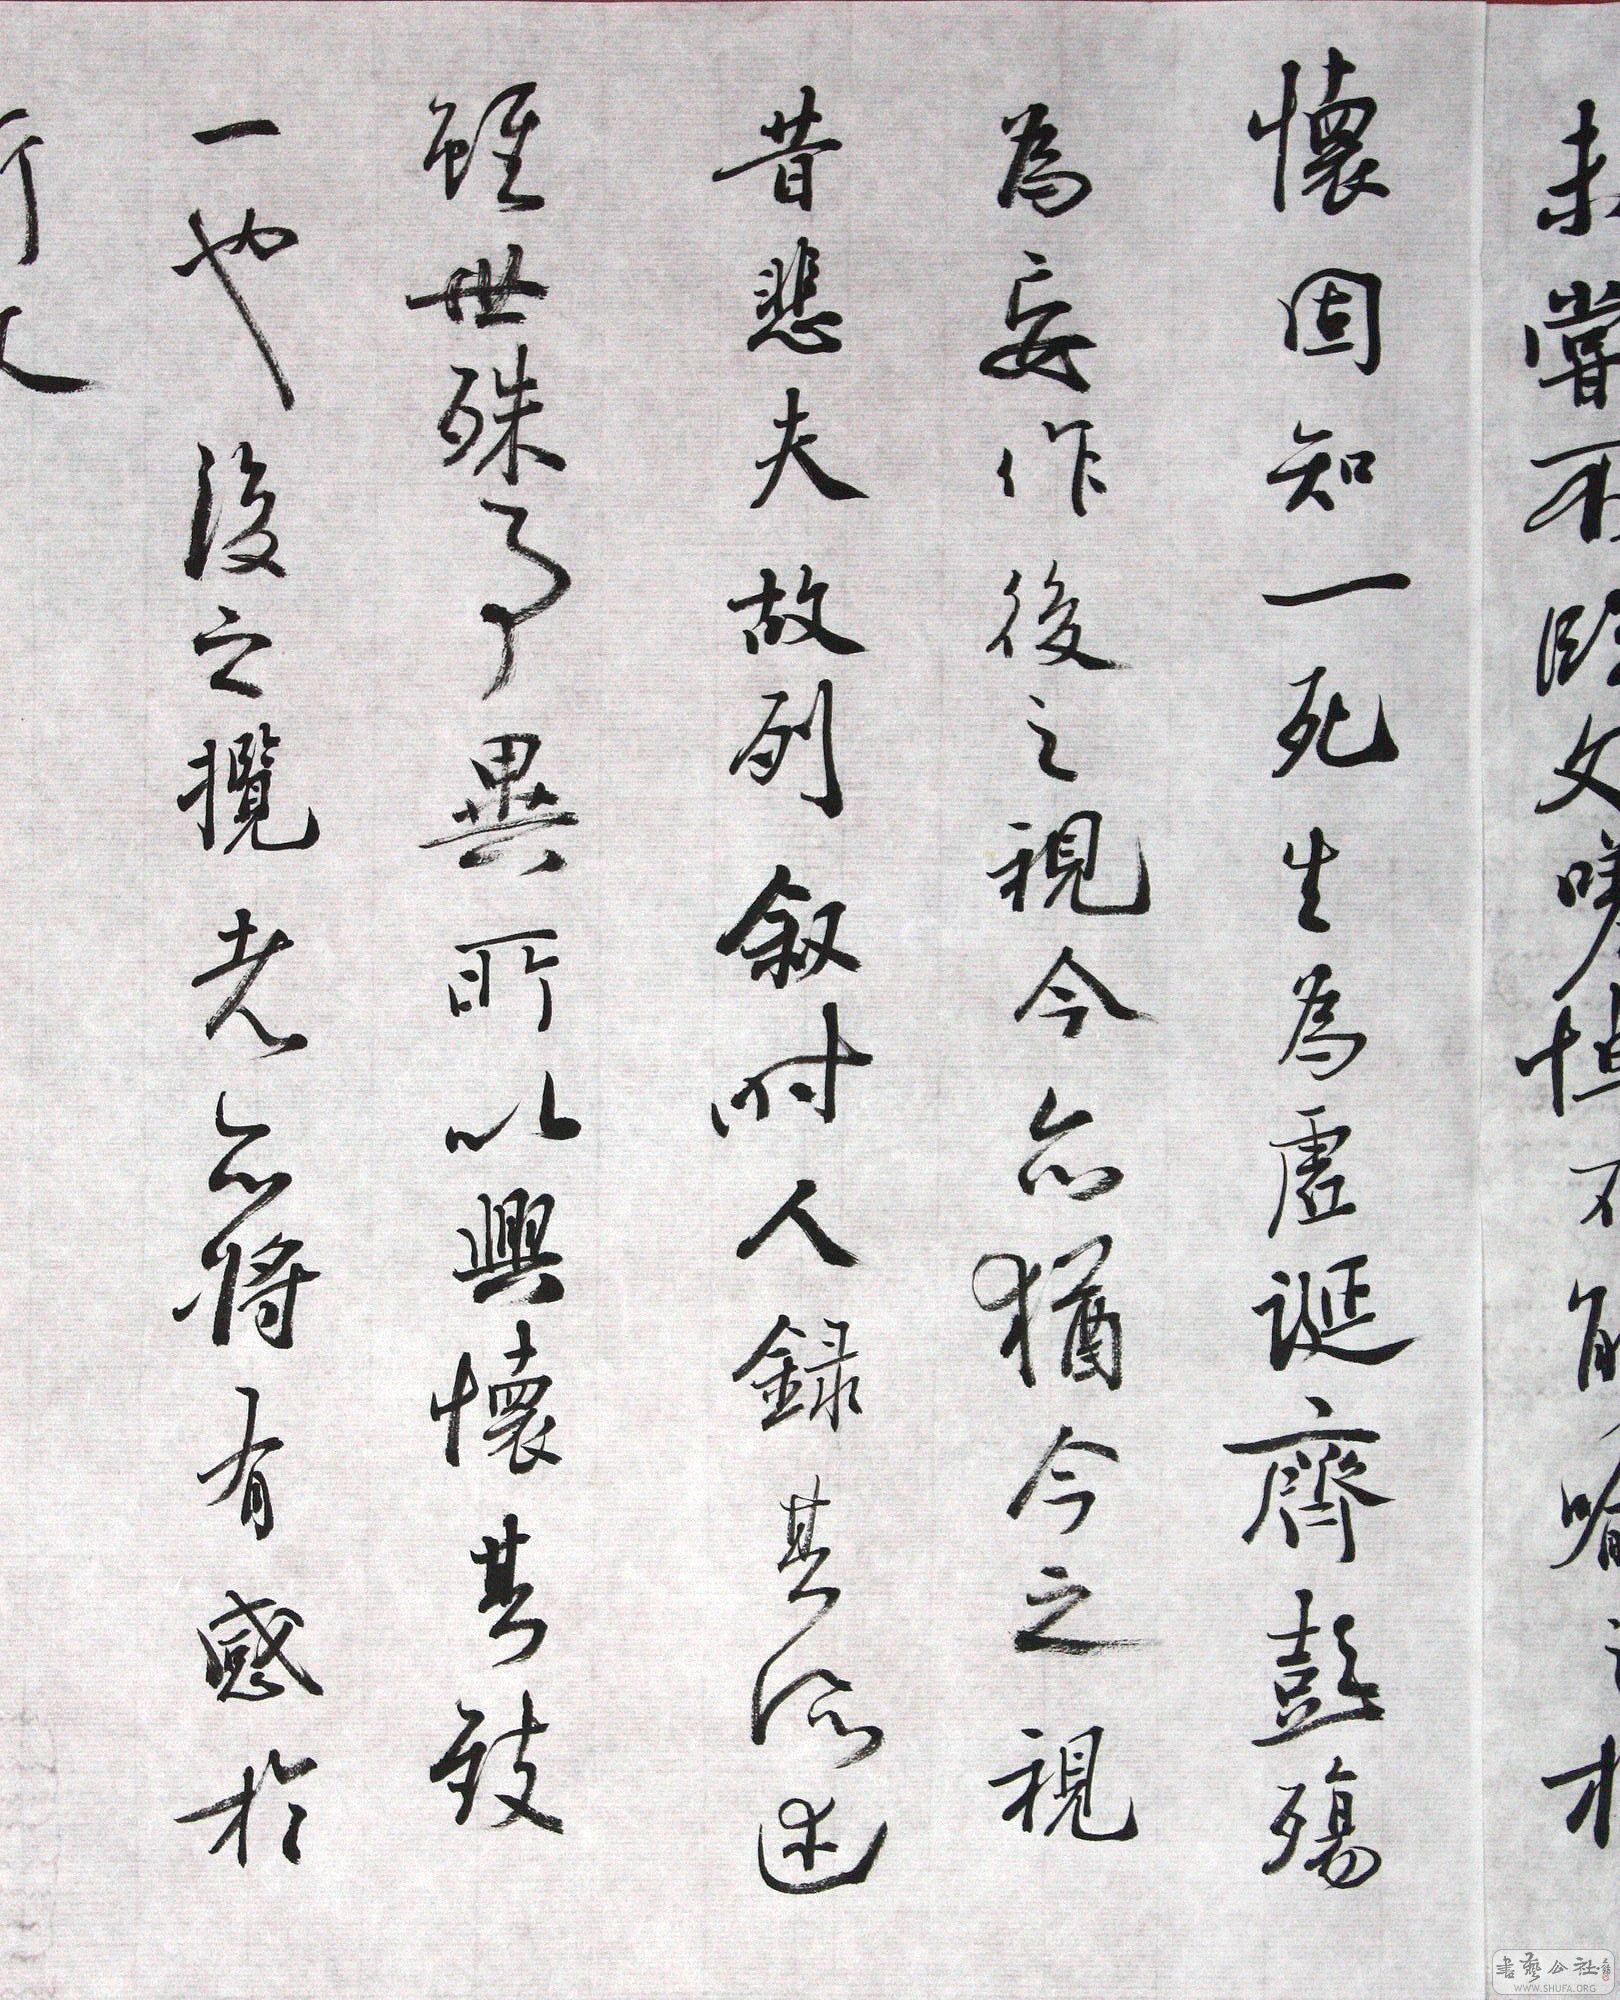 未嘗不臨文嗟悼不能喻之於
懷固知一死生為虛誕齊彭殤
為妄作後之視今亦猶今之視
昔悲夫故列叙時人録其所述
雖世殊事異所以興懷其致
一也後之攬者亦將有感於
斯文
書藝公社
WWW.SHUFA.ORG